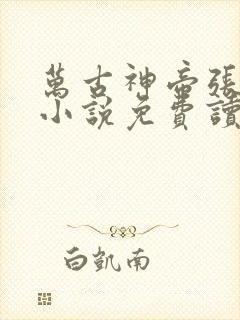 萬古神帝張
小說免費讀
白凱南